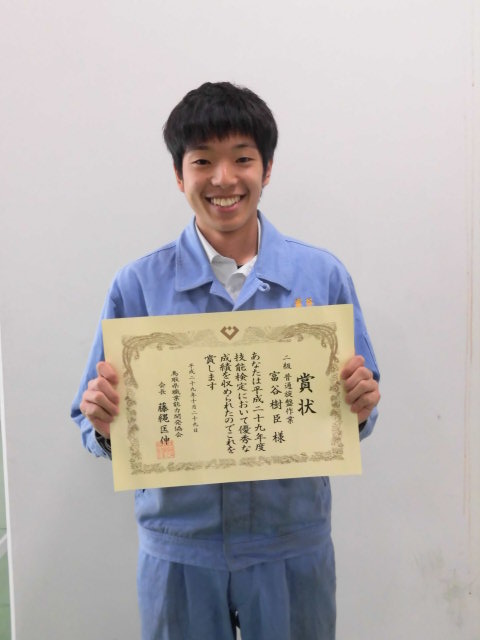 賞状
二級 普通旋盤作業
富谷樹臣 様
あなたは平成二十九年度
技能検定において優秀な
成績を収められたのでこれを
賞します
平成二十九年十月二十九日
鳥取県職業能力開発協会
会長 藤縄匡伸